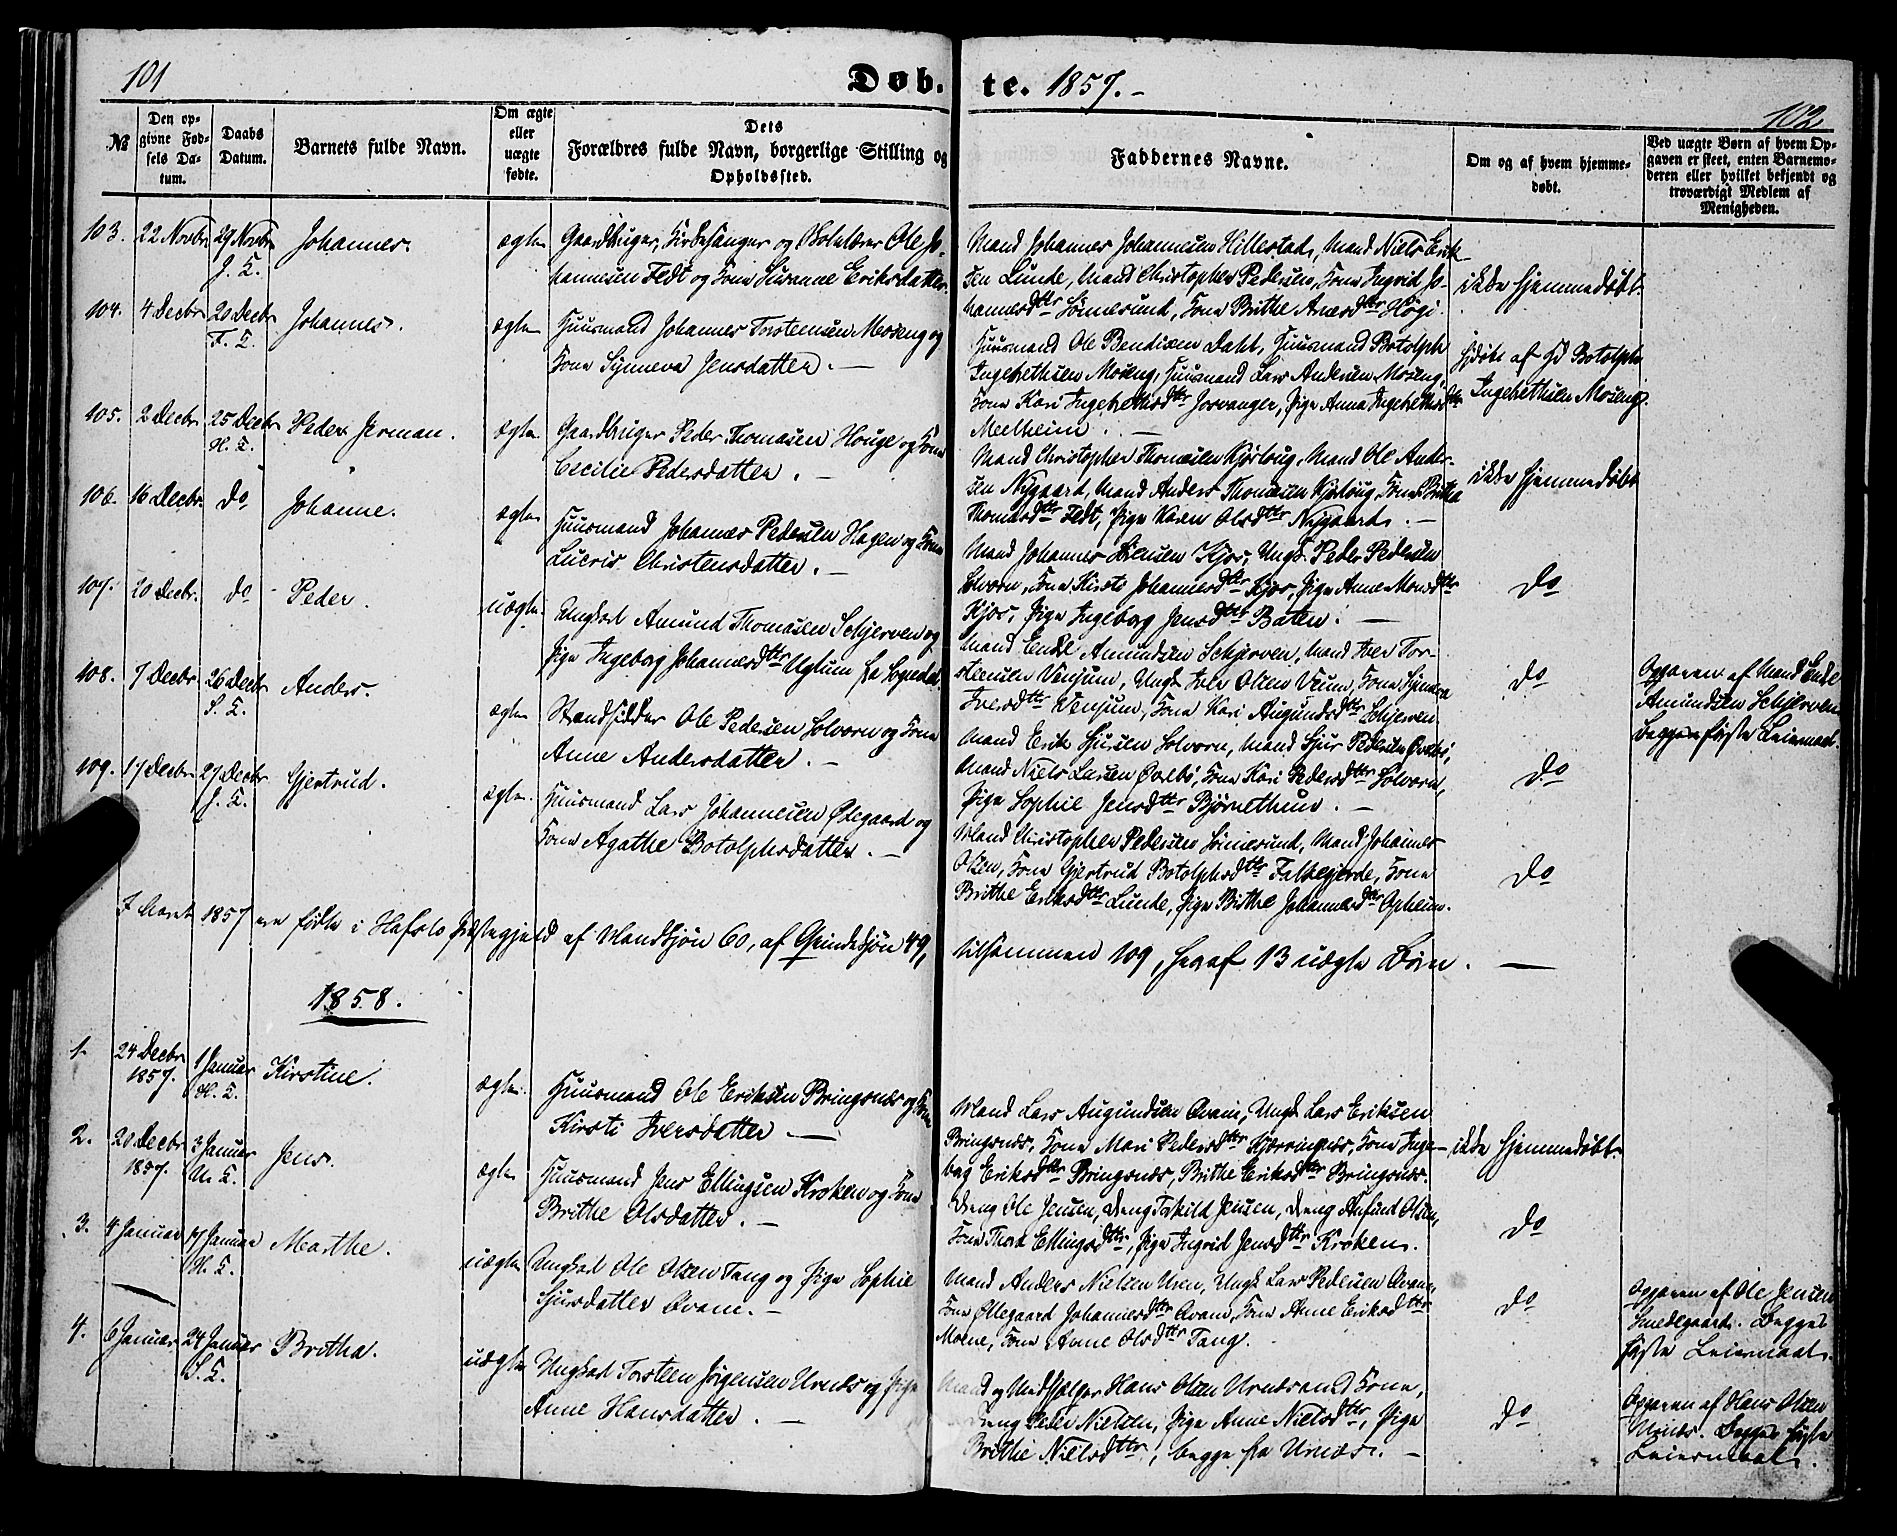 101
Døb-
te. 1857.-
102
№
Den op-
givne Fød-
sels Da-
tum.
Daabs
Datum.
Barnets fulde Navn.
Om ægte
eller
uægte
fødte.
Dets
Forældres fulde Navn, borgerlige Stilling og
Opholdssted.
Faddernes Navne.
Om og af hvem hjemme-
døbt.
Ved uægte Børn af hvem Op-
gaven er skeet, enten Barnemo-
deren eller hvilket bekjendt og
troværdigt Medlem af
Menigheden.
103. 22 Novbr 29 Novbr Johannes. ægte
J. K.
Gaardbruger, Kirkesanger og Skolelærer Ole Jo-
hannesen Fedt og Kone Susanne Eriksdatter.
Mand Johannes Johannesen Hillestad, Mand Niels Erik-
sen Lunde, Mand Christopher Pedersen, Kone Ingrid Jo-
hannesdtr Sönnesund, Kone Brithe Anesdtr Högi.
ikke hjemmedøbt.
104. 4 Decbr 20 Decbr Johannes. ægte
F. K.
Huusmand Johannes Torsteinsen Moseng og
Kone Synneva Jensdatter. —
Huusmand Ole Bendixen Dahl, Huusmand Botolph
Ingebrethsen Moseng, Huusmand Lars Andersen Moseng,
Kone Kari Ingebrethsdtr Jorvanger, Pige Anna Ingebrethsdtr
Meelheim. —
hjdøbt af Botolph
Ingebrethsen Moseng.
105. 2 Decbr 25 Decbr Peder Jerman. ægte
H. K.
Gaardbruger Peder Thomasen Houge og Kone
Cecilie Pedersdatter. —
Mand Christopher Thomasen Kjørloug, Mand Ole Ander-
sen Nygaard, Mand Anders Thomasen Kjørloug, Kone Britha
Thomasdtr Fedt, Pige Karen Olsdtr Nygaard. —
ikke hjemmedøbt
106. 16 Decbr. do Johanne. ægte
Huusmand Johannes Pedersen Hagen og Kone
Lucris Christensdatter. —
Mand Johannes Kjos, Ungk. Peder Pedersen
Solvorn, Kone Kirsti Johannesdtr Kjos, Pige Anne Monsdtr
Kjos, Pige Ingeborg Jensdtr Baten. —
do
107. 20 Decbr. do Peder. uægte
Ungkarl Amund Thomasen Schjerven og
Pige Ingeborg Johannesdtr Uglum fra Sogndal.
Mand Endre Amundsen Schjerven, Mand Iver Tor-
steinsen Vensum, Ungk. Iver Olsen Veum, Kone Synneva
Iversdtr Vensum, Kone Kari Augundsdtr Schjerven
do
Opgaven af Mand Endre
Amundsen Schjerven.
Begges første Leiermaal.
108. 7 Decbr 26 Decbr Anders. ægte
S. K.
Strandsidder Ole Pedersen Solvorn og Kone
Anne Andersdatter. —
Mand Erik Sjursen Solvorn, Mand Sjur Pedersen Ørebö,
Mand Niels Larsen Ørebö, Kone Kari Pedersdtr Solvorn,
Pige Sophie Jensdtr Bjørnethun. —
do
109. 17 Decbr 27 Decbr Gjertrud. ægte.
J. K.
Huusmand Lars Johannesen Ødegaard og
Kone Agathe Botolphsdatter. —
Mand Christopher Pedersen Sönnesund, Mand Johannes
Olsen, Kone Gjertrud Botolphsdtr Falkegjerde, Kone
Brithe Eriksdtr Lunde, Pige Brithe Johannesdtr Opheim.
do
I Aaret 1857 ere fødte i Hafslo Præstegjeld af Mandkjøn 60, af Qvindekjøn 49,
tilsammen 109, heraf 13 uægte Børn. —
1858.
1. 24 Decbr 1 Januar Kirstine. ægte.
1857. H. K.
Huusmand Ole Eriksen Bringsnæs og Kone
Kirsti Iversdatter —
Mand Lars Augundsen Qvam, Ungk. Lars Eriksen
Bringsnæs, Kone Mari Pedersdtr Kjærringnæs, Kone Inge-
borg Eriksdtr Bringsnæs, Brithe Eriksdtr Bringsnæs.
ikke hjemmedøbt.
2. 20 Decbr 3 Januar Jens. ægte
1857. U. K.
Huusmand Jens Ellingsen Kroken og Kone
Brithe Olsdatter. —
Dreng Ole Jensen, Dreng Torkild Jensen, Dreng Anfind Olsen,
Kone Thora Ellingsdtr, Pige Ingrid Jensdtr Kroken.
do
3. 4 Januar 17 Januar Marthe. uægte
H. K.
Ungkarl Ole Olsen Tang og Pige Sophie
Sjursdatter Qvam. —
Mand Anders Nielsen Uren, Ungk. Lars Pedersen Qvam,
Kone Øllegaard Johannesdtr Qvam, Kone Anne Eriksdtr
Moene, Kone Anne Olsdtr Tang.
do
Opgaven af Ole Jensen
Smedegaard. Begges
første Leiermaal.
4. 6 Januar 24 Januar Britha. uægte
S. K.
Ungkarl Torsten Jørgensen Urnæs og Pige
Anne Hansdatter. —
Mand og Medhjælper Hans Olsen Urnæs og Kone,
Dreng Peder Nielsen, Pige Anne Nielsdtr, Pige
Brithe Nielsdtr, begge fra Urnæs. —
do
Opgaven af Hans Olsen
Urnæs. Begges første
Leiermaal.